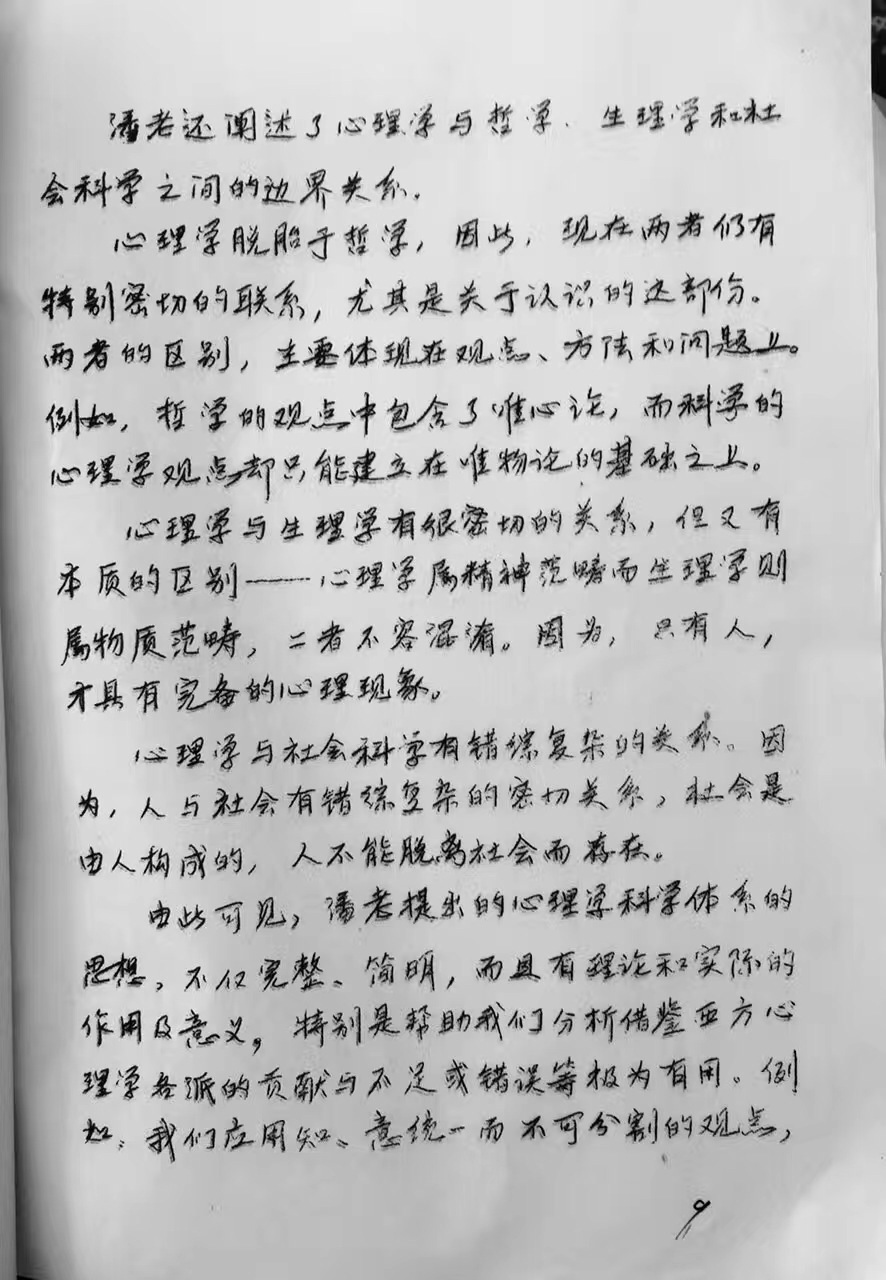 潘老还阐述了心理学与哲学、生理学和社
会科学之间的边界关系。
心理学脱胎于哲学，因此，现在两者仍有
特别密切的联系，尤其是关于认识的这部份。
两者的区别，主要体现在观点、方法和问题上。
例如，哲学的观点中包含了唯心论，而科学的
心理学观点却只能建立在唯物论的基础之上。
心理学与生理学有很密切的关系，但又有
本质的区别——心理学属精神范畴而生理学则
属物质范畴，二者不容混淆。因为，只有人，
才具有完备的心理现象。
心理学与社会科学有错综复杂的关系。因
为，人与社会有错综复杂的密切关系，社会是
由人构成的，人不能脱离社会而存在。
由此可见，潘老提出的心理学科学体系的
思想，不仅完整、简明，而且有理论和实际的
作用及意义，特别是帮助我们分析借鉴西方心
理学各派的贡献与不足或错误等极为有用。例
如，我们应用知、意统一而不可分割的观点，
9